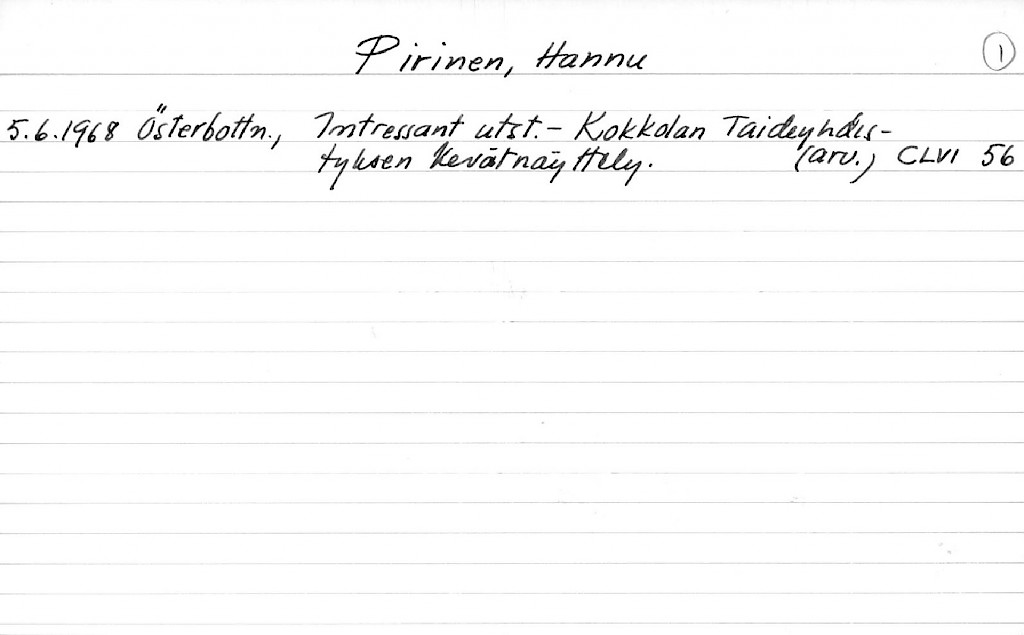 Pirinen, Hannu
1
5.6.1968 Österbottn., Intressant utst. - Kokkolan Taideyhdis-
tyksen Kevätnäyttely. (arv.) CLVI 56